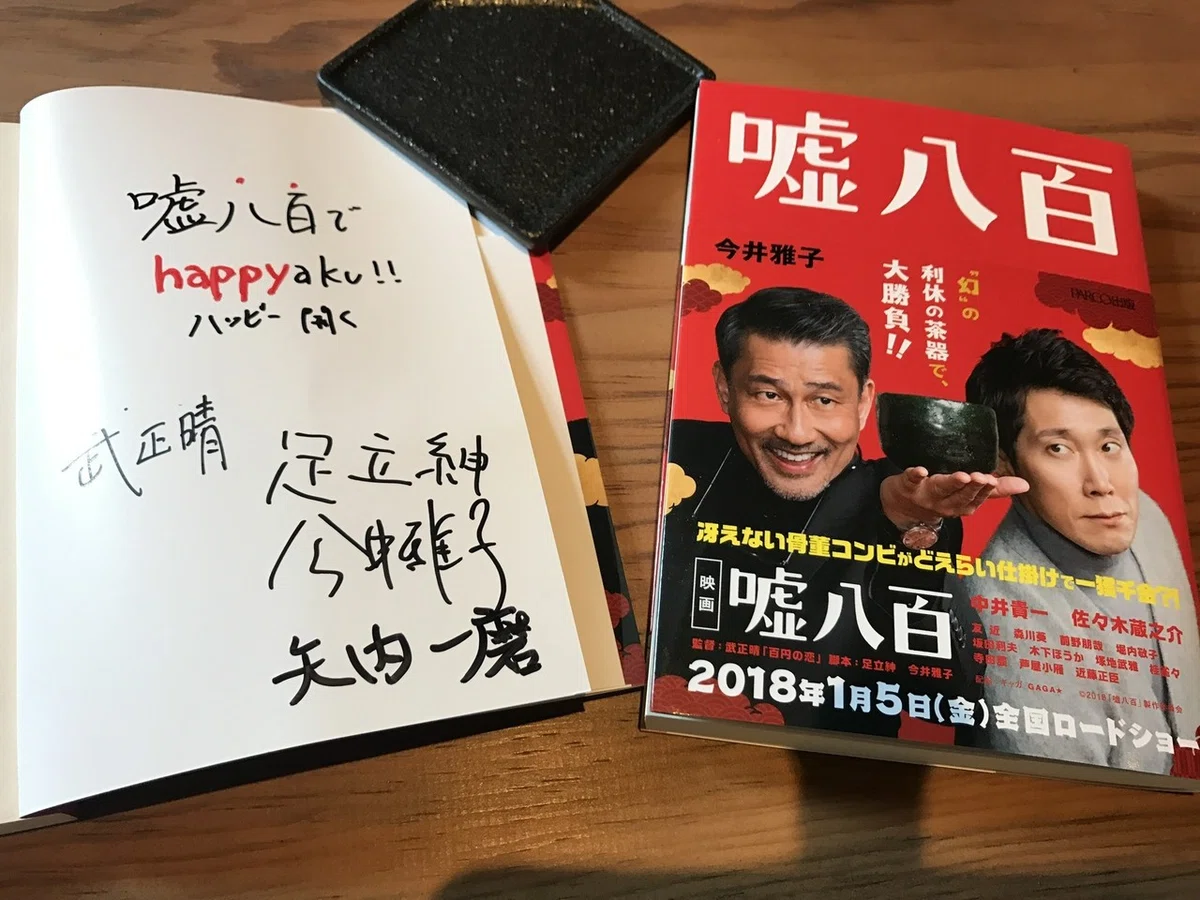 嘘八百で
happyaku!!
ハッピー 開く
武正晴
足立紳
今井雅子
矢内一磨
嘘八百
今井雅子
"幻"の
利休の茶器で、
大勝負!!
冴えない骨董コンビがどえらい仕掛けで一攫千金?!
映画
嘘八百
中井貴一 佐々木蔵之介
友近 森川葵 前野朋哉 堀内敬子
坂田利夫 木下ほうか 塚地武雅 桂雀々
寺田農 芦屋小雁 近藤正臣
監督:武正晴「百円の恋」脚本:足立紳 今井雅子
配給:ギャガ GAGA★ ©2018「嘘八百」製作委員会
2018年1月5日(金)全国ロードショー